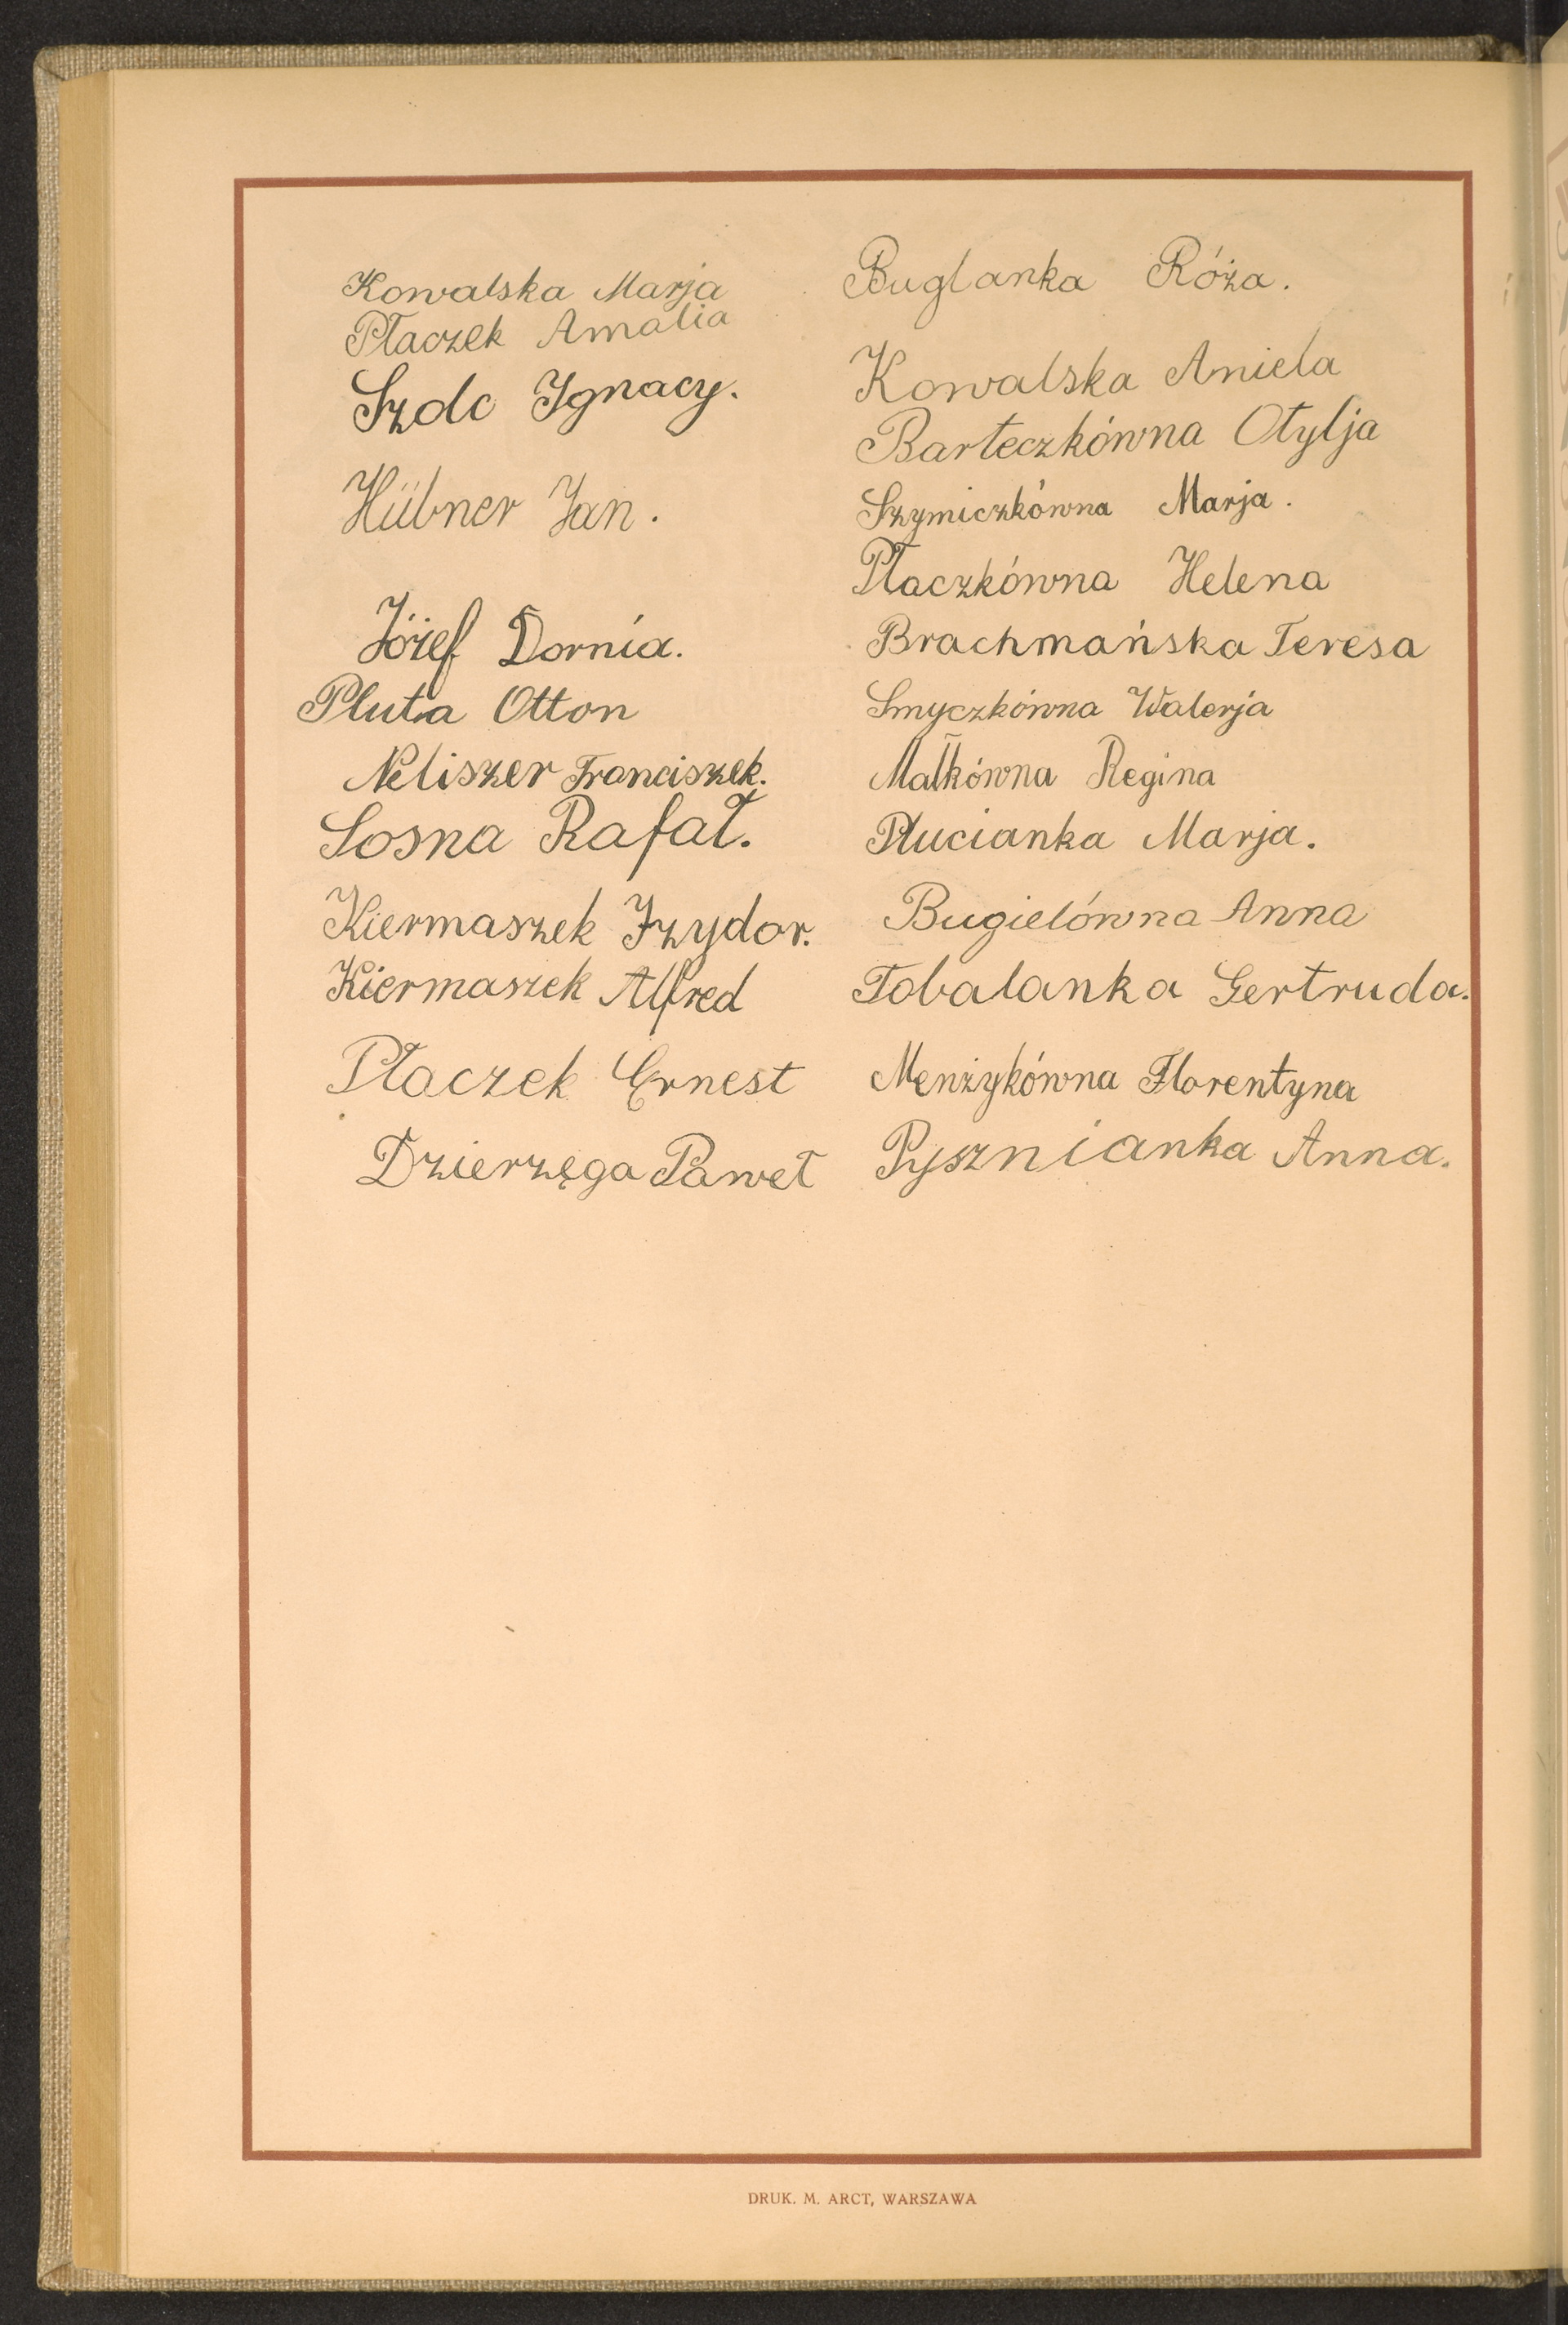 Kowalska Marja
Płaczek Amalia
Szdc Ignacy.
Hübner Jan.
Józef Dornia.
Pluta Otton
Neliszer Franciszek.
Sosna Rafał.
Kiermaszek Izydor.
Kiermaszek Alfred
Płaczek Ernest
Dzierzęga Paweł
Buglanka Róża.
Kowalska Aniela
Barteczkówna Otylja
Szymiczkówna Marja.
Płaczkówna Helena
Brachmańska Teresa
Smyczkówna Walerja
Małkówna Regina
Plucianka Marja.
Bugielówna Anna
Tobalanka Gertruda.
Menżykówna Florentyna
Pysznianka Anna.
DRUK. M. ARCT, WARSZAWA